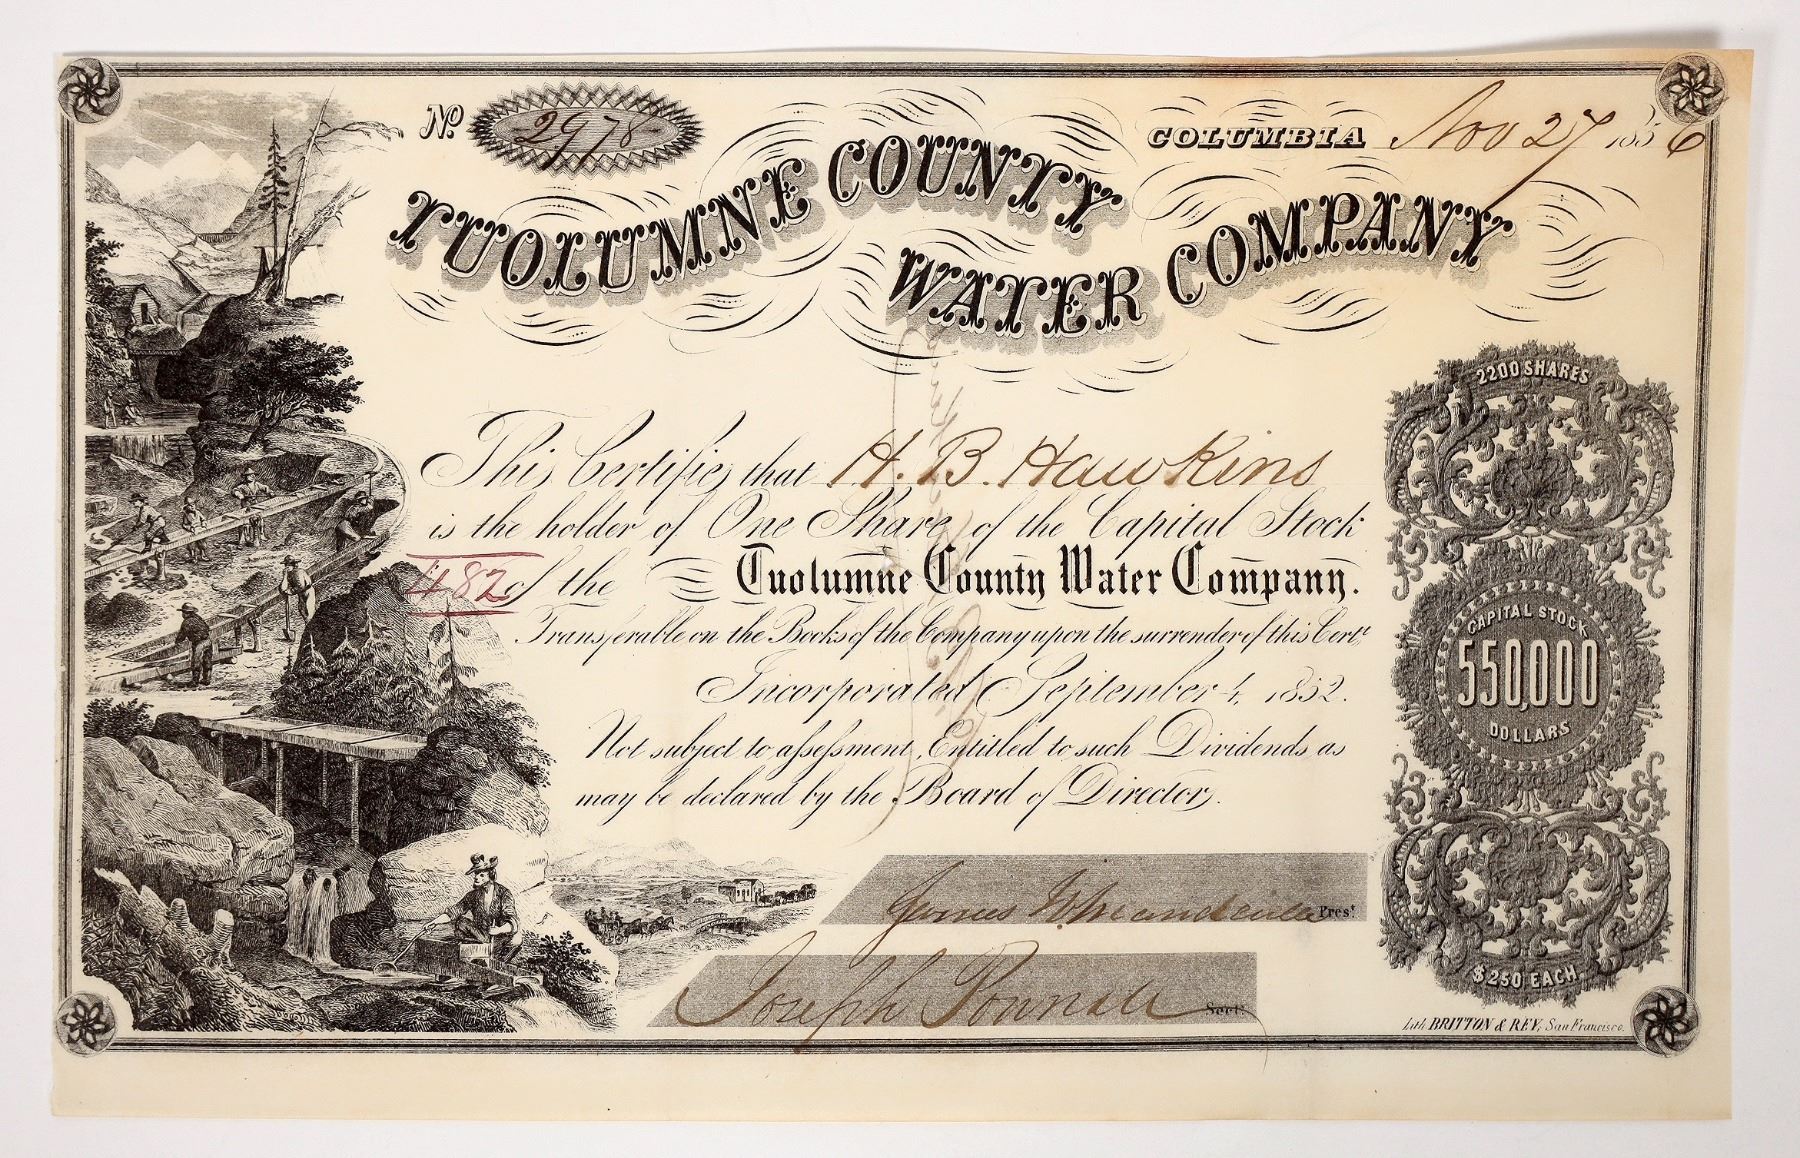 No. 2978
COLUMBIA Nov 27 1856
TUOLUMNE COUNTY
WATER COMPANY
2200 SHARES
This Certifies that H. B. Hawkins
is the holder of One Share of the Capital Stock
482 of the Tuolumne County Water Company.
Transferable on the Books of the Company upon the surrender of this Certe.
Incorporated September 4, 1852.
Not subject to assessment, Entitled to such Dividends as
may be declared by the Board of Directors.
CAPITAL STOCK
550,000
DOLLARS
James Prest.
Joseph Pownall Secty.
$250 EACH
Lith. BRITTON & REY, San Francisco.